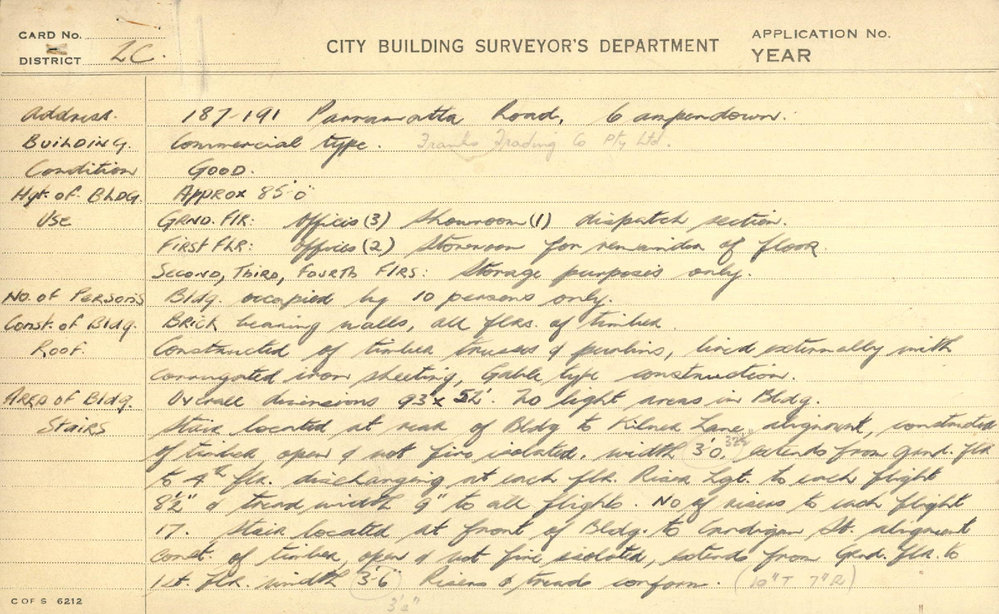 CARD No.
DISTRICT LC.
CITY BUILDING SURVEYOR'S DEPARTMENT
APPLICATION No.
YEAR
Address. 187-191 Parramatta Road, Camperdown.
Building. Commercial type. Franks Trading Co Pty Ltd.
Condition GOOD.
Hgt. of BLDG. Approx 85'0"
Use GRND. FLR: Offices (3) Showroom (1) dispatch section.
FIRST FLR: Offices (2) Storeroom for remainder of floor.
SECOND, THIRD, FOURTH FLRS: Storage purposes only.
No. of Persons Bldg. occupied by 10 persons only.
Const. of Bldg. Brick bearing walls, all flrs. of timber.
Roof. Constructed of timber trusses & purlins, lined externally with
corrugated iron sheeting, Gable type construction.
Area of Bldg. Overall dimensions 93' x 52'. No light areas in Bldg.
Stairs Stair located at rear of Bldg to Kilner Lane alignment, constructed
of timber open & not fire isolated, width 3'0" extends from grnd. flr
to 4th flr. discharging at each flr. Riser hgt. to each flight
8½" & tread width 9" to all flights. No of risers to each flight
17. Stair located at front of Bldg. to Cardigan St. alignment
const. of timber, open & not fire isolated, extends from Grd. flr. to
1st. flr. width 3'6" Risers & treads conform. (10" T 7" R)
3'2"
C OF S 6212